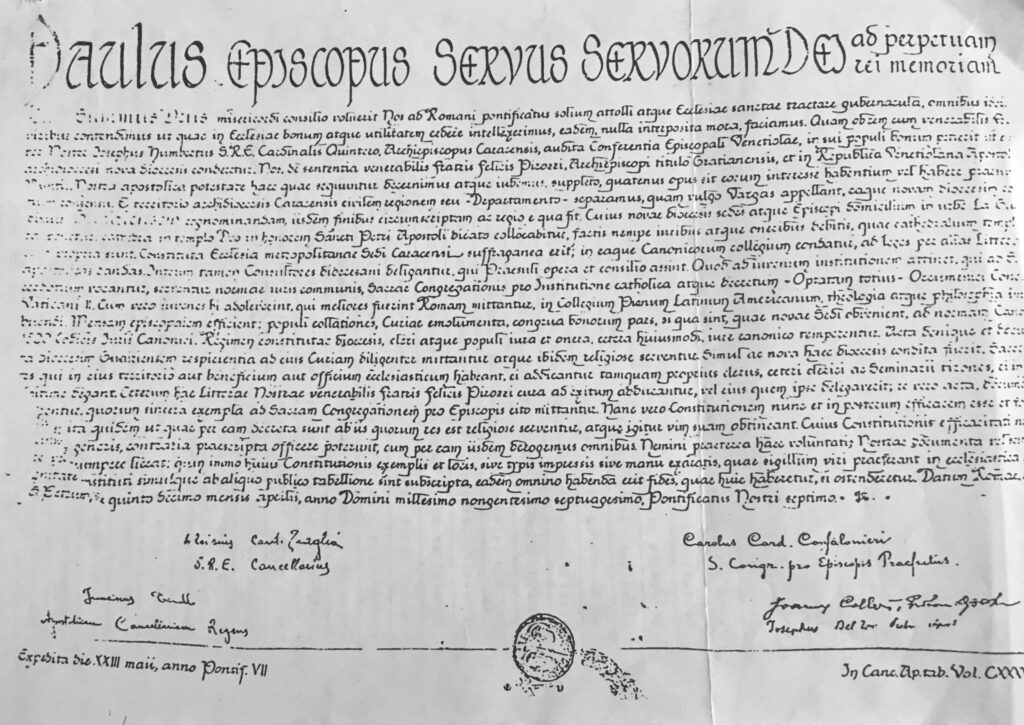 PAULUS EPISCOPUS SERVUS SERVORUM DEI ad perpetuam rei memoriam
misericordi consilio voluerit Nos ad Romani pontificatus solium attolli atque Ecclesiae sanctae tractare gubernacula, omnibus
viribus contendimus ut quae in Ecclesiae bonum atque utilitatem cedere intellexerimus, eadem, nulla interposita mora, faciamus. Quam ob rem cum venerabilis
Noster Iosephus Humbertus S.R.E. Cardinalis Quintero, Archiepiscopus Caracensis, audita Conferentia Episcopali Venetiolae, in sui populi bonum petierit ut e
archidioecesi nova dioecesis conderetur, Nos, de sententia venerabilis fratris Felicis Pirozzi, Archiepiscopi titulo Gratianensis, et in Republica Venetiolana Apostol
Nuntii, Nostra apostolica potestate haec quae sequuntur decernimus atque iubemus, suppleto, quatenus opus sit eorum interesse habentium vel habere
consensu. E territorio archidioecesis Caracensis civilem regionem seu -Departamento- separamus, quam vulgo Vargas appellant, eaque novam dioecesim
cognominandam, iisdem finibus circumscriptam ac regio e qua fit. Cuius novae dioecesis sedes atque Episcopi domicilium in urbe La
cathedra in templo Deo in honorem Sancti Petri Apostoli dicato collocabitur, factis nempe iuribus atque oneribus debitis, quae cathedralium
propria sunt. Constituta Ecclesia metropolitanae Sedi Caracensi suffraganea erit; in eaque Canonicorum collegium condatur, ad leges per alias Litteras
dandas. Interim tamen Consultores dioecesani deligantur, qui Praesuli opera et consilio assint. Quod ad iuvenum institutionem attinet, qui ad
vocantur, serventur normae iuris communis, Sacrae Congregationis pro Institutione catholica atque decretum -Optatam totius- Oecumenici Conc
Vaticani II. Cum vero iuvenes hi adoleverint, qui meliores fuerint Romam mittantur, in Collegium Pianum Latinum Americanum, theologia atque philosophia
Mensam episcopalem efficient: populi collationes, Curiae emolumenta, congrua bonorum pars, si qua sint, quae novae Sedi obvenient, ad normam
1500 Codicis Iuris Canonici. Regimen constitutae dioecesis, cleri atque populi iura et onera, cetera huiusmodi, iure canonico temperentur. Acta denique et
Dioecesim Guairensem respicientia ad eius Curiam diligenter mittantur atque ibidem religiose serventur. Simul ac nova haec dioecesis condita fuerit,
qui in eius territorio aut beneficium aut officium ecclesiasticum habeant, ei addicantur tamquam proprius clerus, ceteri clerici ac Seminarii tirones, ei in
degant. Ceterum has Litteras Nostras venerabilis fratris Felicis Pirozzi cura ad exitum adducantur, vel eius quem ipse delegaverit; re vero acta,
quorum sincera exempla ad Sacram Congregationem pro Episcopis cito mittantur. Hanc vero Constitutionem nunc et in posterum efficacem esse et
ita quidem ut quae per eam decreta sunt ab iis quorum res est religiose serventur, atque igitur vim suam obtineant. Cuius Constitutionis efficacitati
generis, contraria praescripta officere poterunt, cum per eam iisdem derogemus omnibus. Nemini praeterea haec voluntatis Nostrae documenta
rumpere liceat; quin immo huius Constitutionis exemplis et locis, sive typis impressis sive manu exaratis, quae sigillum viri praeferant in ecclesiastica
constituti simulque ab aliquo publico tabellione sint subscripta, eadem omnino habenda erit fides, quae huic haberetur, si ostenderetur. Datum Romae,
S. Petrum, die quinto decimo mensis aprilis, anno Domini millesimo nongentesimo septuagesimo, Pontificatus Nostri septimo.
Aloisius Card. Traglia
S.R.E. Cancellarius
Carolus Card. Confalonieri
S. Congr. pro Episcopis Praefectus.
Franciscus Tinello
Apostolicam Cancellariam Regens
Expedita die XXIII maii, anno Pontif. VII
In Canc. Ap. tab. Vol.